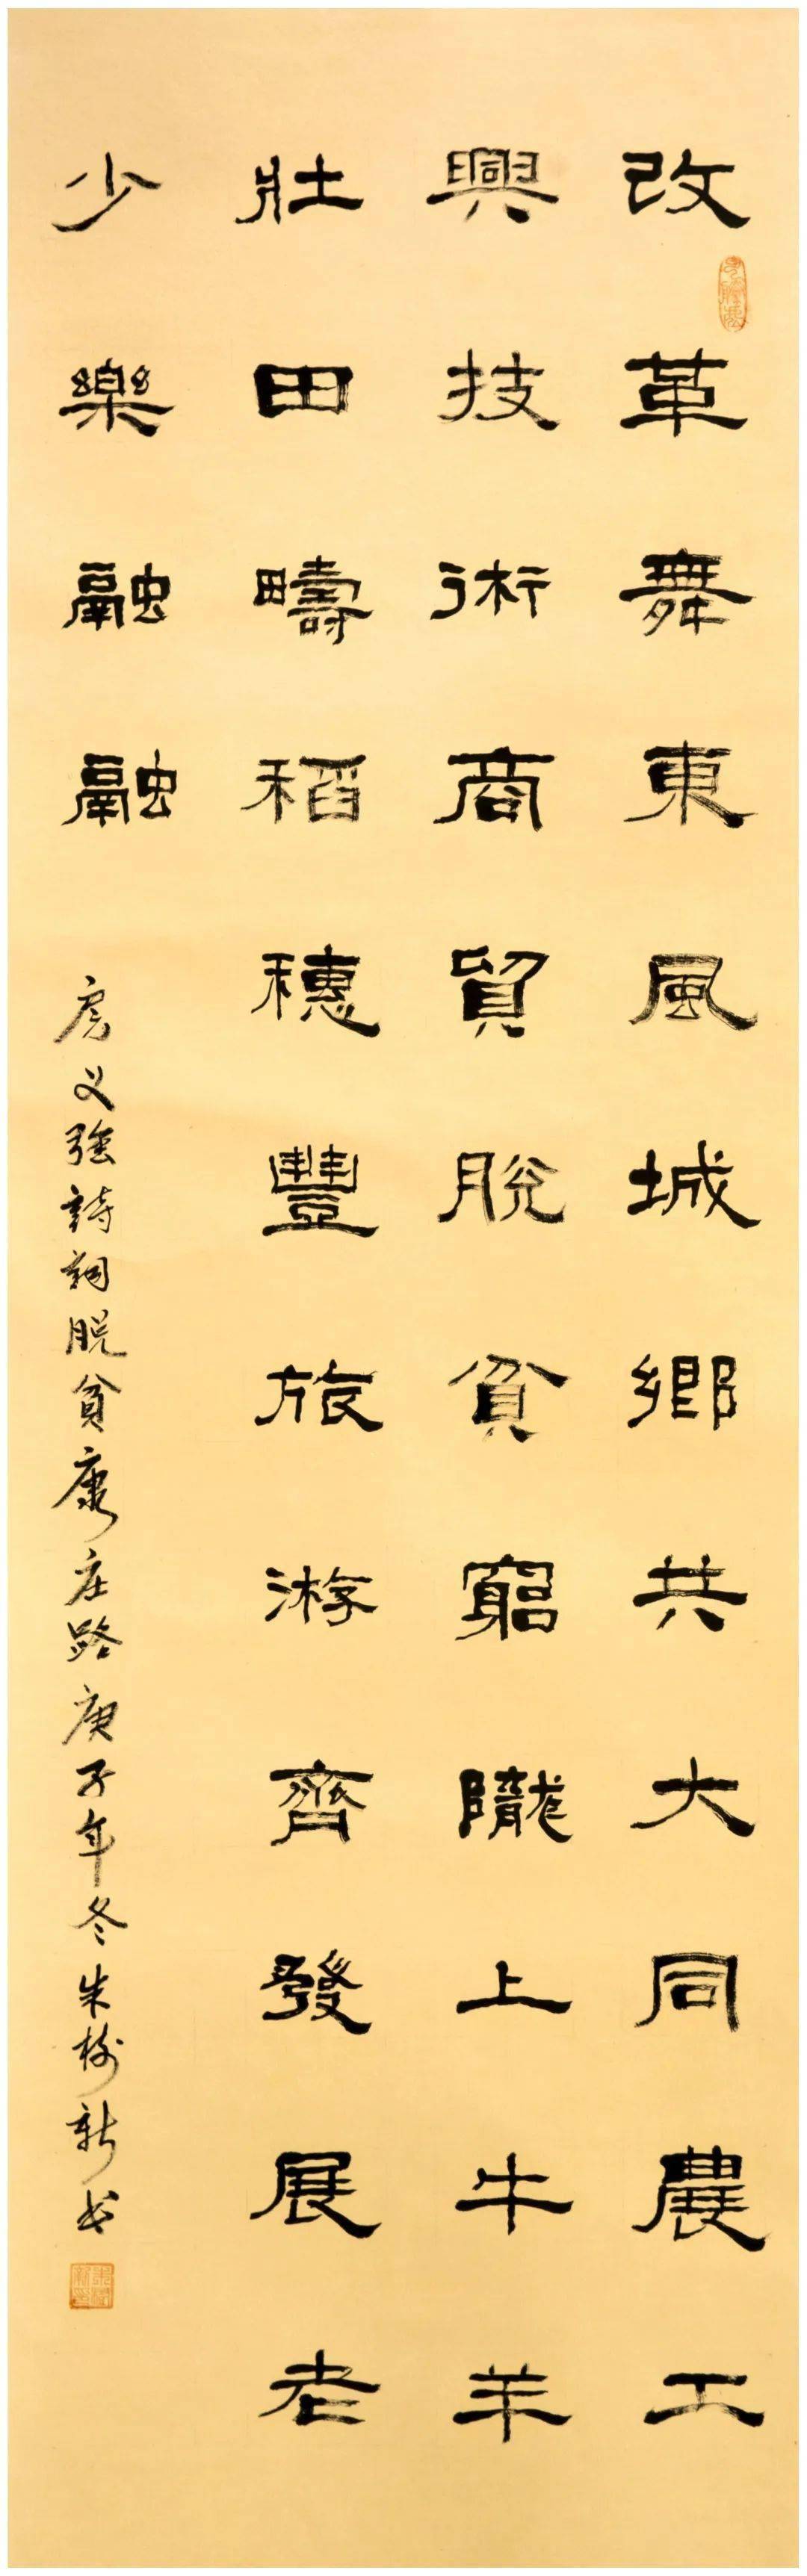 改革舞東風城鄉共大同農工
興技術商貿脫貧窮隴上牛羊
壯田疇稻穗豐旅游齊發展老
少樂融融
房义强詩詞脱貧康庄路庚子年冬朱樹新书